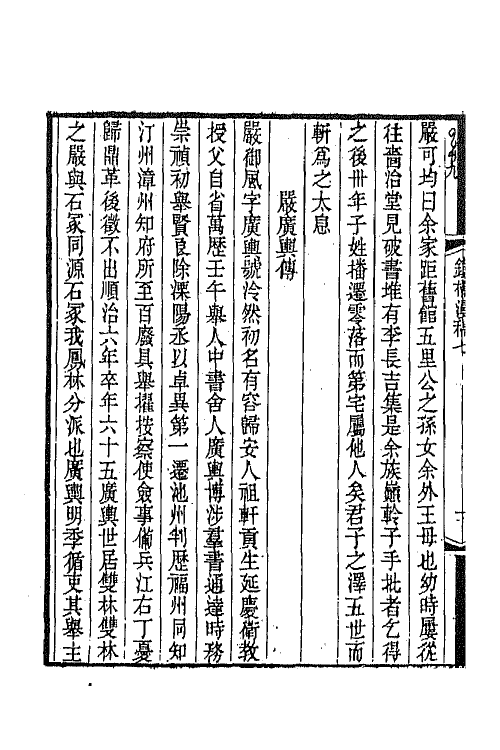 嚴可均曰余家距舊館五里公之孫女余外王母也幼時屢從
往裔治堂見破書堆有李長吉集是余族巔軨子手批者乞得
之後卅年子姓播遷零落而第宅屬他人矣君子之澤五世而
斬爲之太息
嚴廣輿傳
嚴御風字廣輿號泠然初名有容歸安人祖軒貢生延慶衛教
授父自省萬歷壬午舉人中書舍人廣輿博涉羣書通達時務
崇禎初舉賢良除溧陽丞以卓異第一遷池州判歷福州同知
汀州漳州知府所至百廢具舉擢按察使僉事備兵江右丁憂
歸鼎革後徵不出順治六年卒年六十五廣輿世居雙林雙林
之嚴與石冢同源石冢我鳳林分派也廣輿明季循吏其舉主
鐵橋漫稿七